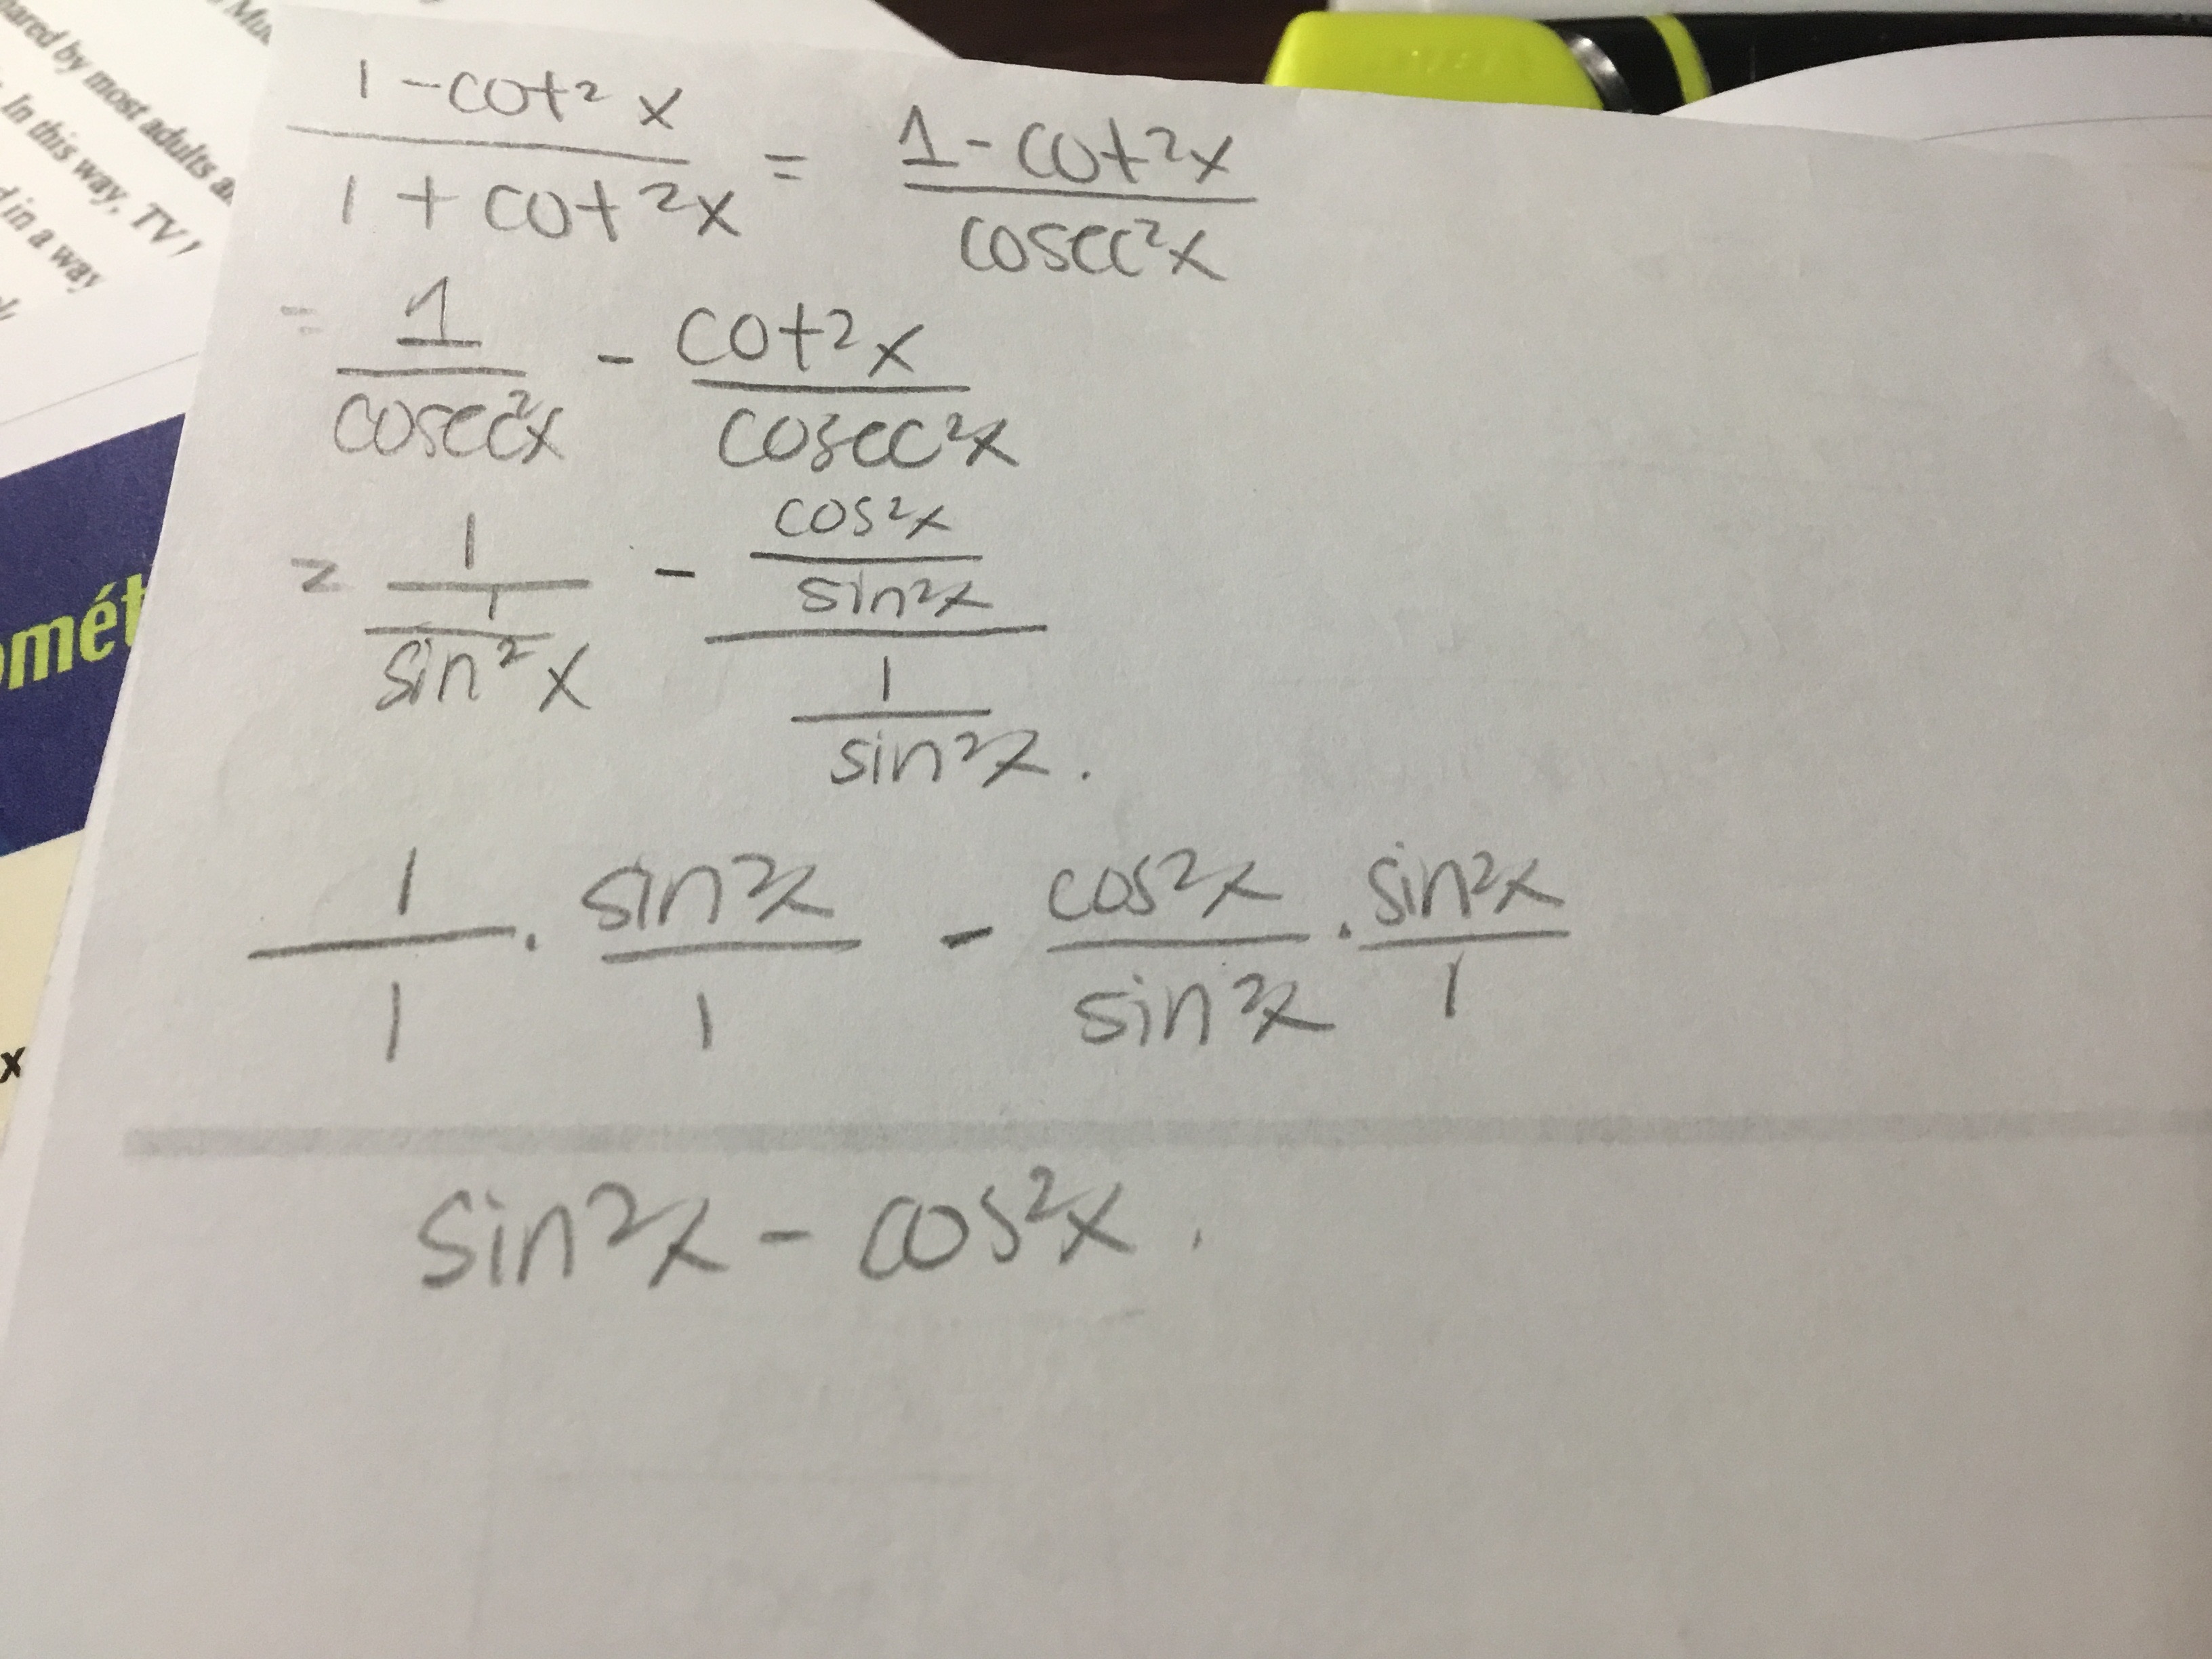 ared by most adults a
. In this way, TV
d in a way
omét
x
1 - cot² x / 1 + cot² x = 1 - cot² x / cosec² x
= 1 / cosec² x - cot² x / cosec² x
= 1 / (1 / sin² x) - (cos² x / sin² x) / (1 / sin² x).
1 / 1 · sin² x / 1 - cos² x / sin² x · sin² x / 1
sin² x - cos² x.